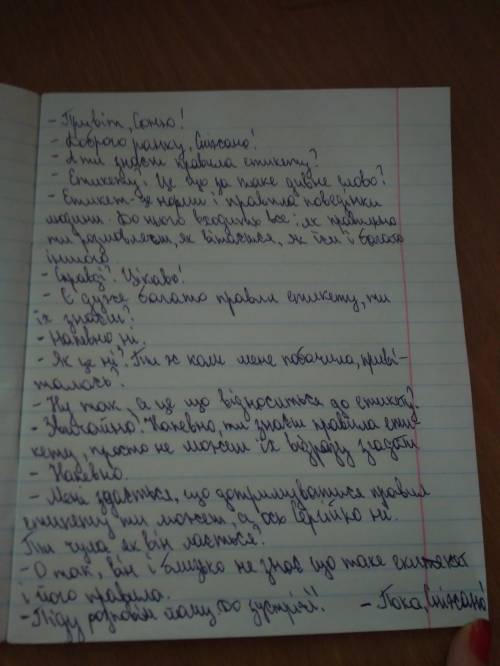 - Привіт, Соню!
- Доброго ранку, Сніжано!
- А ти знаєш правила етикету?
- Етикету? Це що за таке дивне слово?
- Етикет - це норми і правила поведінки
людини. До нього входить все: як правильно
ти розмовляєш, як вітаєшся, як їси і багато
іншого.
- Справді? Цікаво!
- Є дуже багато правил етикету, ти
їх знаєш?
- Напевно ні.
- Як це ні? Ти ж коли мене побачила, приві-
талась?
- Ну так, а це що відноситься до етикету?
- Звичайно! Напевно, ти знаєш правила ети-
кету, просто не можеш їх відразу згадати
- Напевно.
- Мені здається, що дотримуватися правил
етикету ти можеш, а ось Сергійко ні.
Ти чула як він лається?
- О так, він і близько не знає що таке етикет
і його правила.
- Піду розповім йому. До зустрічі!
- Пока, Сніжано!